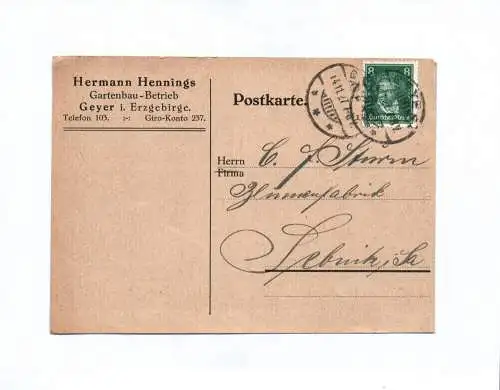 Hermann Hennings
Gartenbau-Betrieb
Geyer i. Erzgebirge.
Telefon 103. Giro-Konto 237.
Postkarte.
8 8
Deutsches Reich
Herrn
Firma
C. J. Sturm
Blumenfabrik
Sebnitz i/Sa